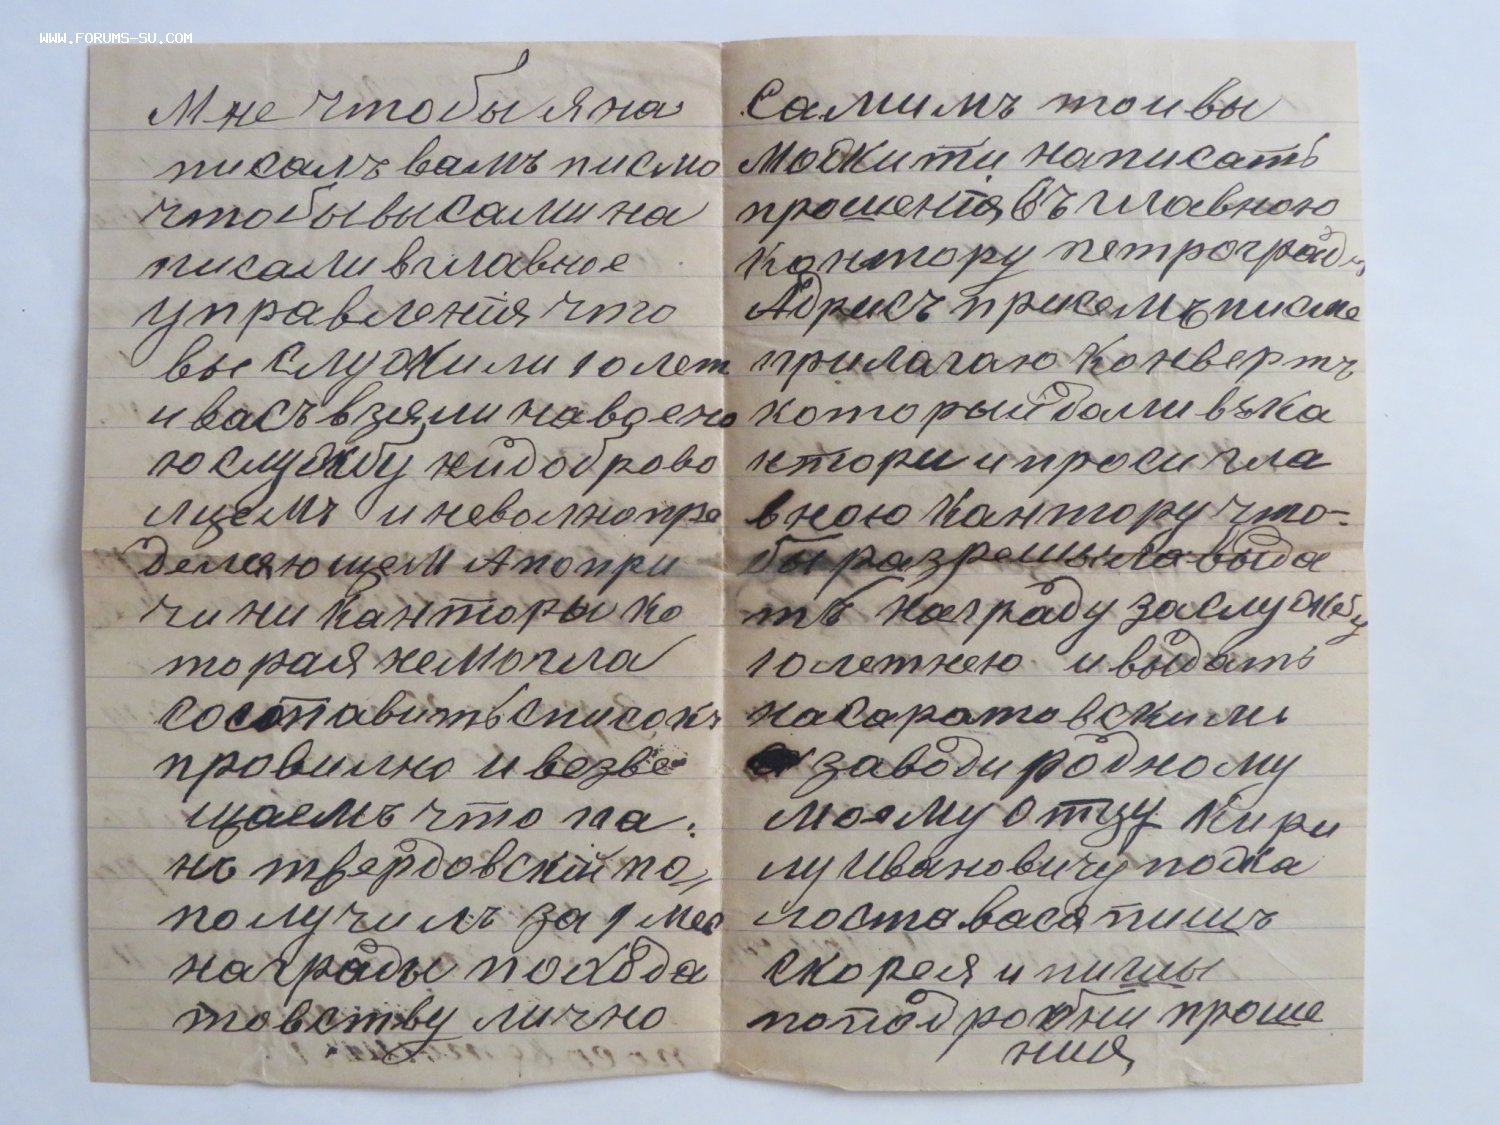 WWW.FORUMS-SU.COM
Мне чтобы я на
писалъ вамъ писмо
чтобы вы сами на
писали вглавное
управленiя что
вы служили 10 лет
и васъ взяли на воено
ю службу нидоброво
лцемъ и неволнопре
деляющем Апопри
чини канторы ко
торая не могла
состaвить списокъ
правилно и возве
щаемъ что па
нъ твердовскiй по
получилъ за 1 мес
награды похода
товству лично
Самимъ то и вы
можити написать
прошенiя въ главною
контору петроград
Адрисъ присемъ писме
прилагаю конвертъ
который дали въ ка
нтори и проси гла
вною кантору что-
бы разрешыла выда
ть награду за службу
10 летнею и выдать
на саратовскими
заводи родному
моему отцу Кири
лу Ивановичу пожа
лоста вася пишъ
скорея и пишы
поподробни проше
ния